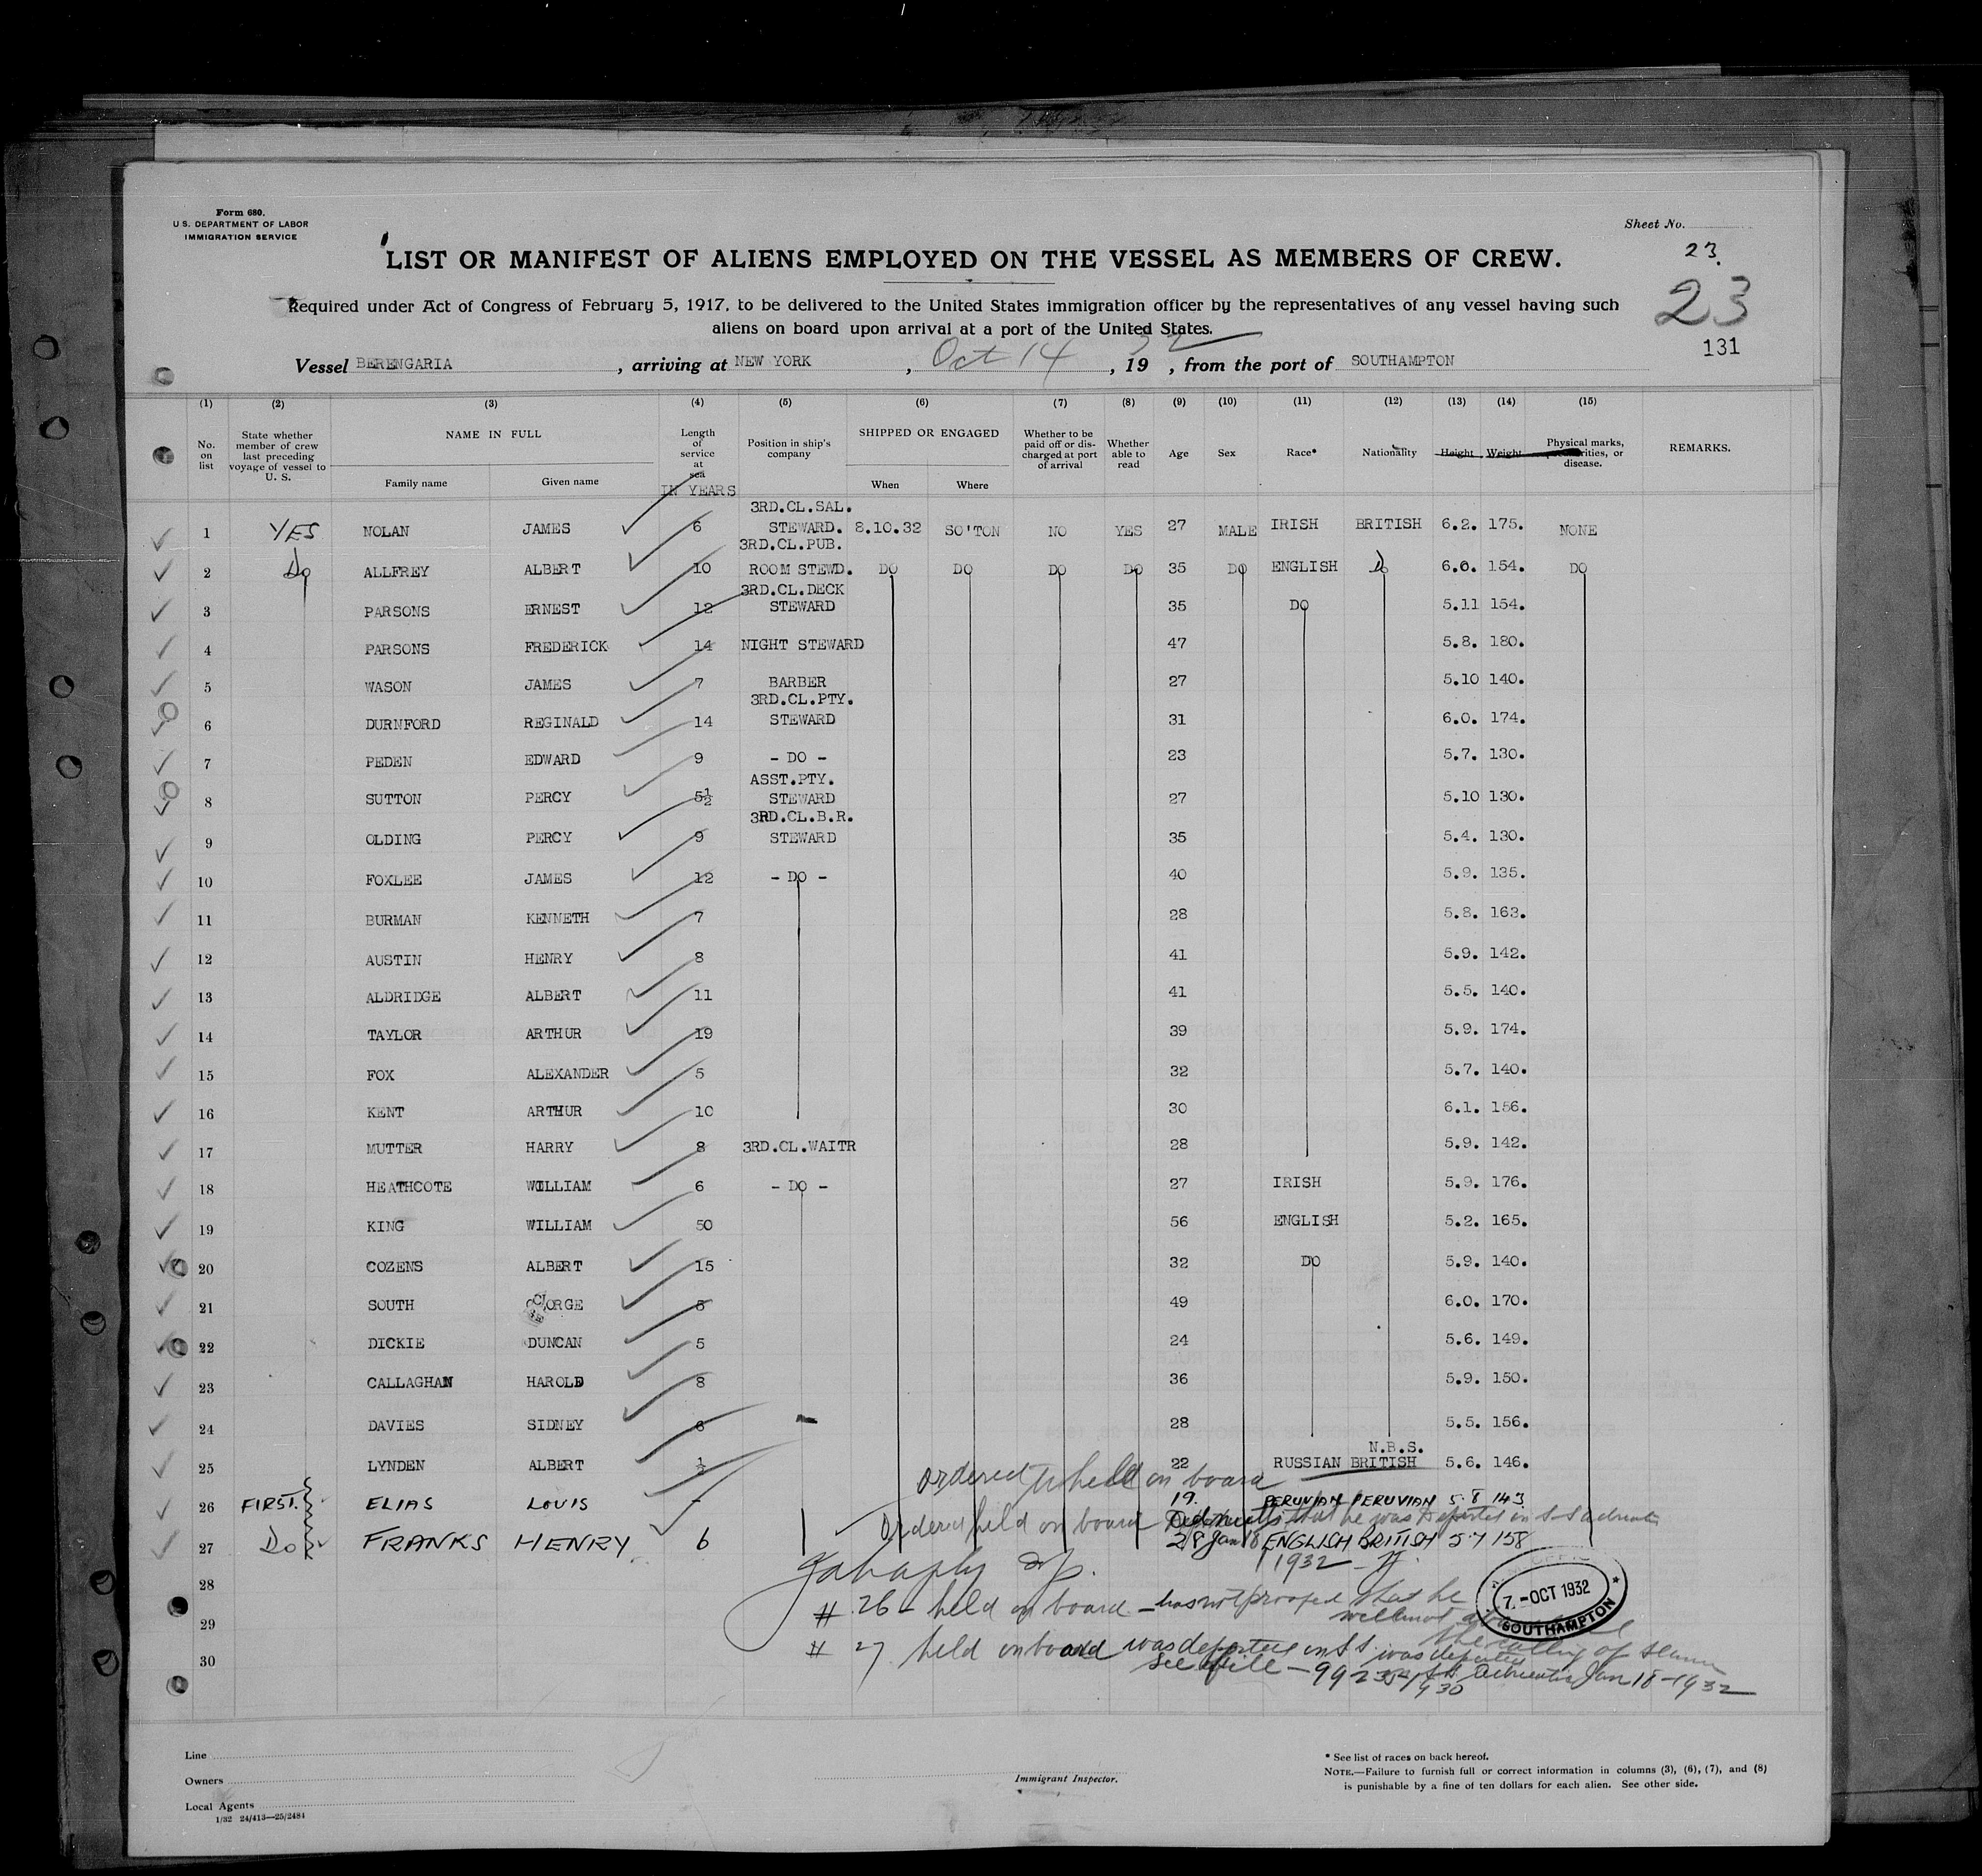 Form 680.
U.S. DEPARTMENT OF LABOR
IMMIGRATION SERVICE
Sheet No.
23.
LIST OR MANIFEST OF ALIENS EMPLOYED ON THE VESSEL AS MEMBERS OF CREW.
23
131
Required under Act of Congress of February 5, 1917, to be delivered to the United States immigration officer by the representatives of any vessel having such
aliens on board upon arrival at a port of the United States.
Vessel BERENGARIA, arriving at NEW YORK, Oct 14, 1932, from the port of SOUTHAMPTON
(1) (2) (3) (4) (5) (6) (7) (8) (9) (10) (11) (12) (13) (14) (15)
No. on list
State whether member of crew last preceding voyage of vessel to U. S.
NAME IN FULL
Family name
Given name
Length of service at sea
IN YEARS
Position in ship's company
SHIPPED OR ENGAGED
When
Where
Whether to be paid off or discharged at port of arrival
Whether able to read
Age
Sex
Race*
Nationality
Height
Weight
Physical marks, peculiarities, or disease.
REMARKS.
1 YES NOLAN JAMES 6 3RD.CL.SAL. STEWARD. 8.10.32 SO'TON NO YES 27 MALE IRISH BRITISH 6.2. 175. NONE
2 Do ALLFREY ALBERT 10 3RD.CL.PUB. ROOM STEWD. DO DO DO DO 35 DO ENGLISH Do 6.0. 154. DO
3 PARSONS ERNEST 12 3RD.CL.DECK STEWARD 35 DO 5.11 154.
4 PARSONS FREDERICK 14 NIGHT STEWARD 47 5.8. 180.
5 WASON JAMES 7 BARBER 27 5.10 140.
6 DURNFORD REGINALD 14 3RD.CL.PTY. STEWARD 31 6.0. 174.
7 PEDEN EDWARD 9 - DO - 23 5.7. 130.
8 SUTTON PERCY 5½ ASST.PTY. STEWARD 27 5.10 130.
9 OLDING PERCY 9 3RD.CL.B.R. STEWARD 35 5.4. 130.
10 FOXLEE JAMES 12 - DO - 40 5.9. 135.
11 BURMAN KENNETH 7 28 5.8. 163.
12 AUSTIN HENRY 8 41 5.9. 142.
13 ALDRIDGE ALBERT 11 41 5.5. 140.
14 TAYLOR ARTHUR 19 39 5.9. 174.
15 FOX ALEXANDER 5 32 5.7. 140.
16 KENT ARTHUR 10 30 6.1. 156.
17 MUTTER HARRY 8 3RD.CL.WAITR 28 5.9. 142.
18 HEATHCOTE WILLIAM 6 - DO - 27 IRISH 5.9. 176.
19 KING WILLIAM 50 56 ENGLISH 5.2. 165.
20 COZENS ALBERT 15 32 DO 5.9. 140.
21 SOUTH GEORGE 5 49 6.0. 170.
22 DICKIE DUNCAN 5 24 5.6. 149.
23 CALLAGHAN HAROLD 8 36 5.9. 150.
24 DAVIES SIDNEY 6 28 5.5. 156.
N.B.S.
25 LYNDEN ALBERT ½ 22 RUSSIAN BRITISH 5.6. 146.
ordered held on board
26 FIRST. ELIAS LOUIS - 19. PERUVIAN PERUVIAN 5.8 143
Ordered held on board that he was deported on S-S
27 Do FRANKS HENRY. 6 28 Jan 18 ENGLISH BRITISH 5.7 158
1932
28
# 26 - held on board - has not proofed that he
29
will not
# 27 held on board was deported on S.S. was deported
calling of
30
See file - 99235/930 Jan 18 - 1932
7 - OCT 1932
SOUTHAMPTON
Line
Owners
Local Agents
1/32 24/413—25/2484
Immigrant Inspector.
* See list of races on back hereof.
NOTE.—Failure to furnish full or correct information in columns (3), (6), (7), and (8)
is punishable by a fine of ten dollars for each alien. See other side.